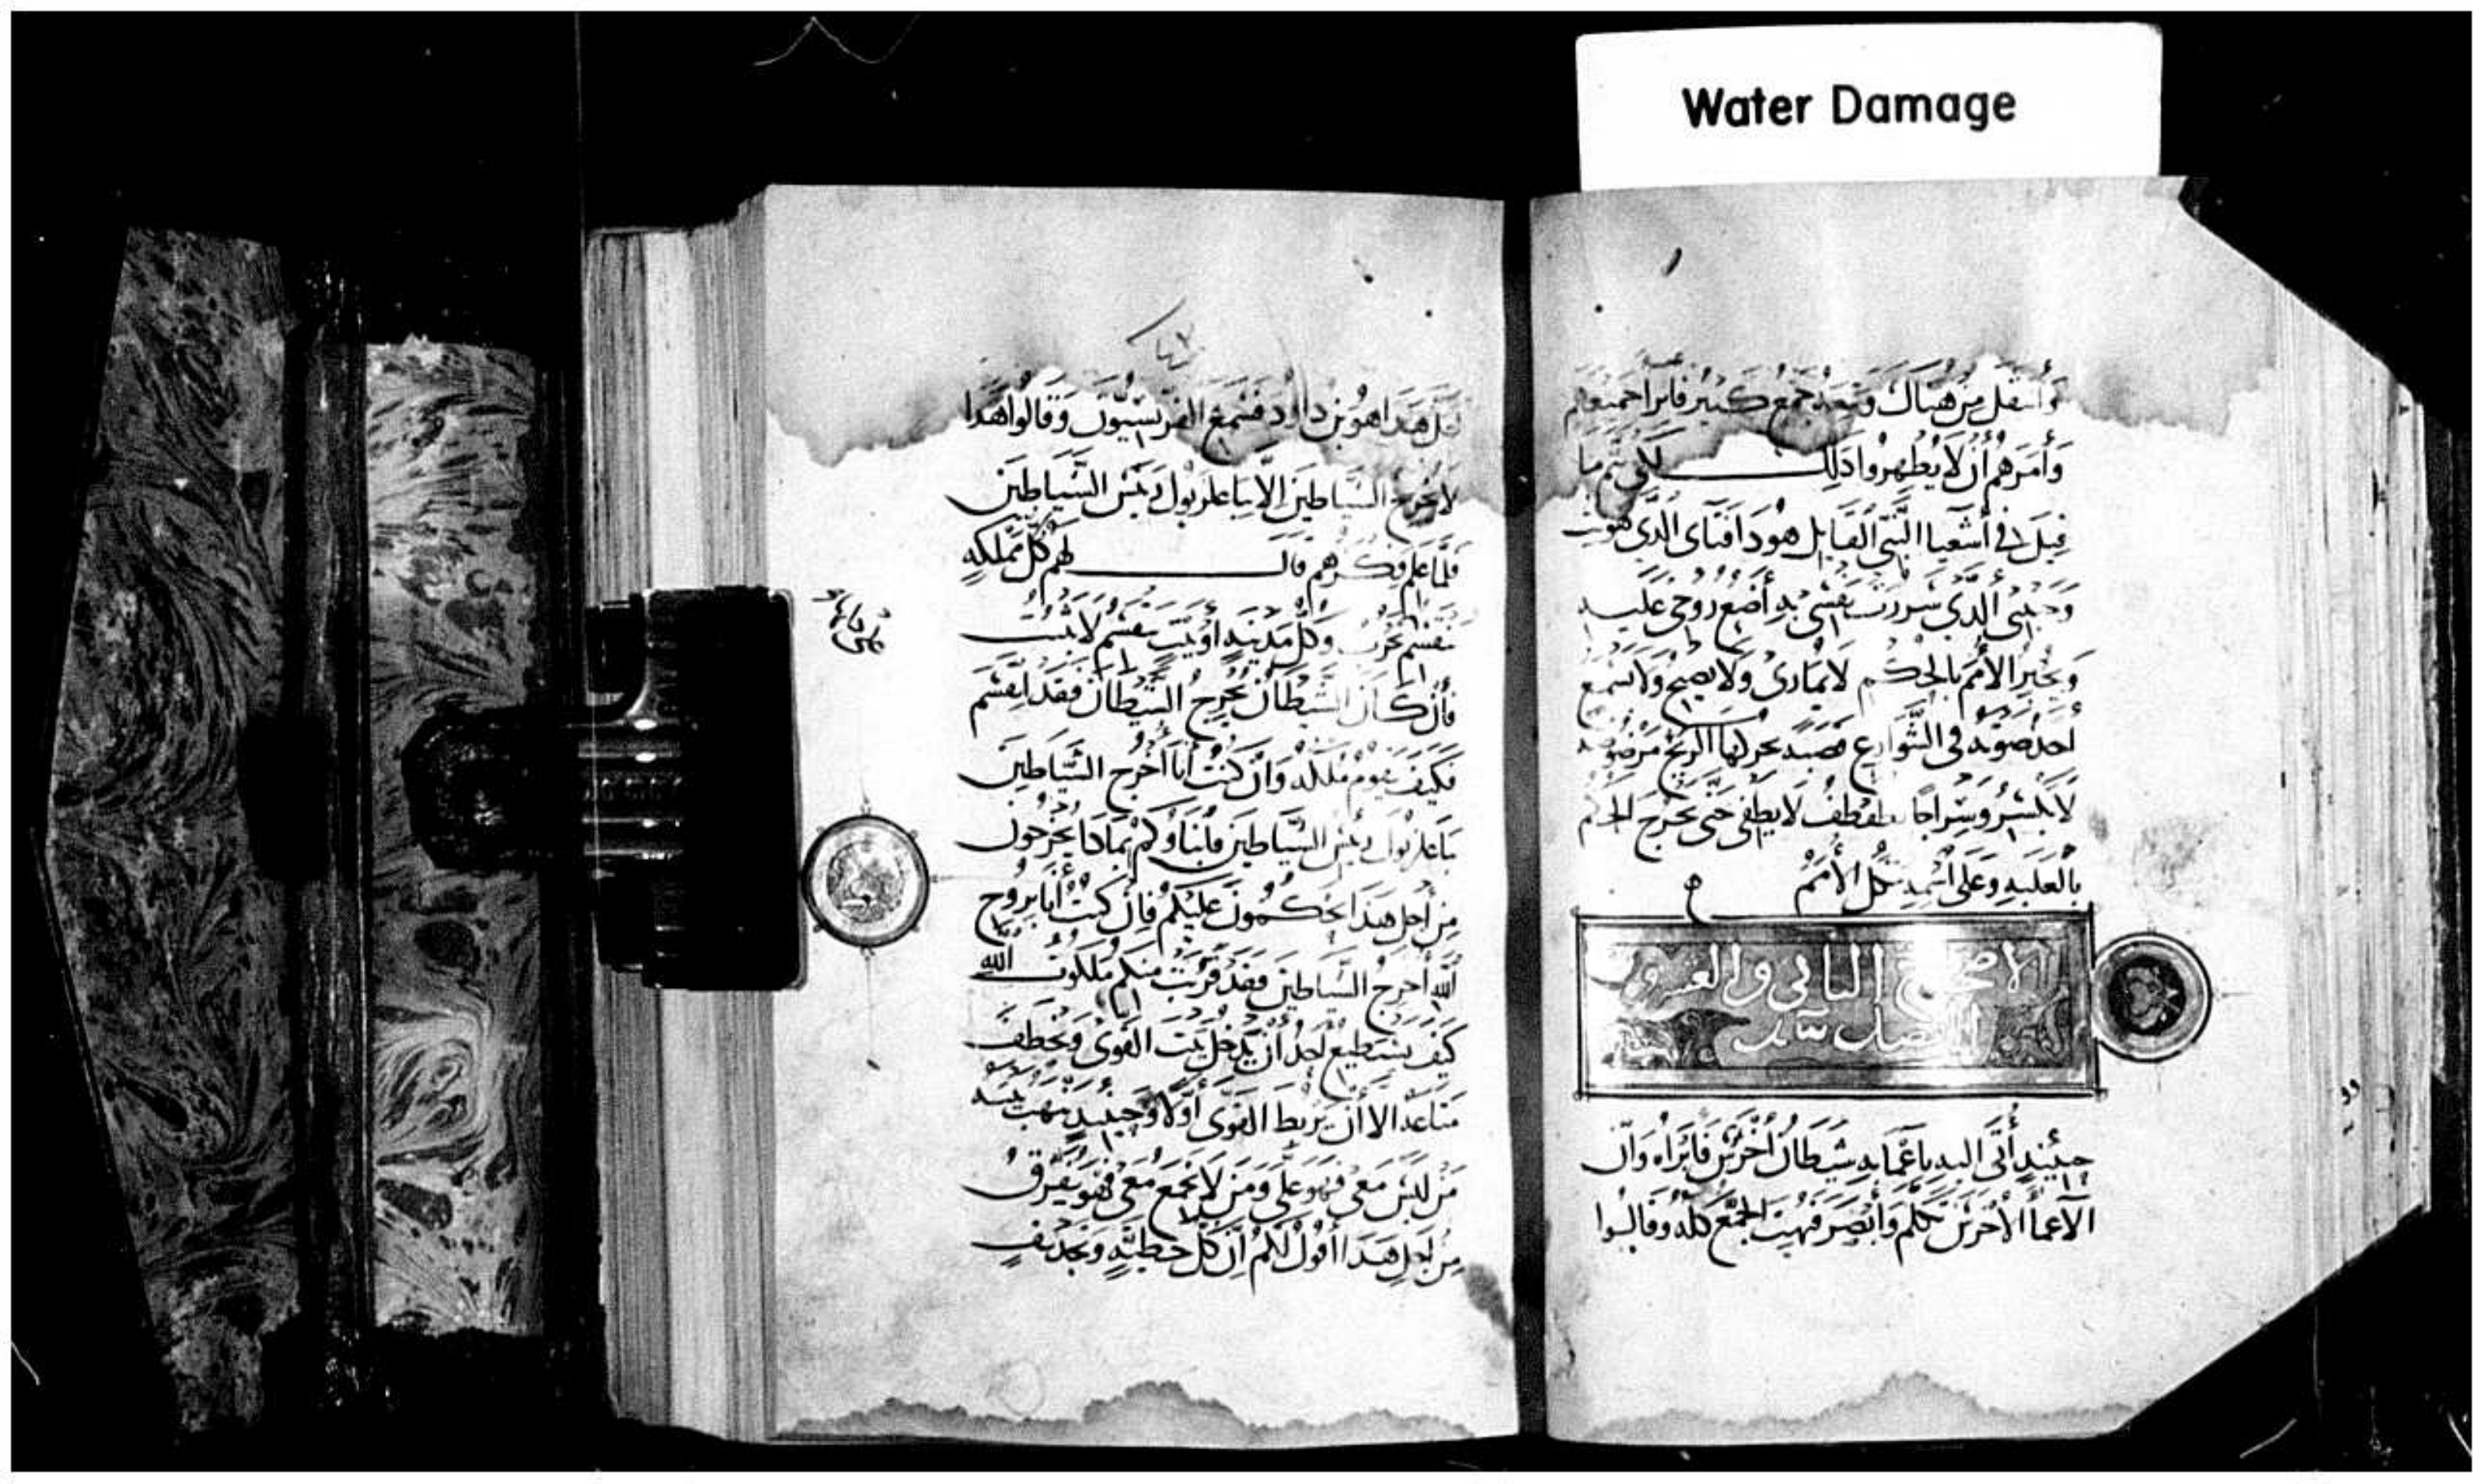 Water Damage
وَأنتقل من هناك وتبعه جمع كبير فابرا جميعهم
وَأمرهم أن لا يظهروا ذلك لكى يتم ما
قيل فى أشعيا النبى القايل هوذا فتاى الذى هويت
وحبيبى الذى سررت نفسى به أضع روحى عليه
ويخبر الأمم بالحكم لا يمارى ولا يصيح ولا يسمع
أحد صوته فى الشوارع قصبه مرضوضه
لا يكسر وسراجا يطفطف لا يطفى حتى يخرج الحكم
بالغلبه وعلى اسمه تتكل الأمم
الاصحاح الثانى والعشرون
حينيذ أتى اليه باعما به شيطان أخرس فابراه وان
الاعما الاخرس تكلم وابصر فبهت الجمع كله وقالوا
لعل هذا هو بن داود فسمع الفريسيون وقالوا هذا
لا يخرج الشياطين الا بباعلزبول ريس الشياطين
فلما علم فكرهم قال لهم كل مملكه
تنقسم تخرب وكل مدينه أو بيت ينقسم لا يثبت
فان كان الشيطان يخرج الشيطان فقد انقسم
فكيف يقوم ملكه وان كنت أنا أخرج الشياطين
بباعلزبول ريس الشياطين فأبناوكم بماذا يخرجون
من أجل هذا يحكمون عليكم فان كنت أنا بروح
الله أخرج الشياطين فقد قربت منكم ملكوت الله
كيف يستطيع احد أن يدخل بيت القوى ويخطف
متاعه الا أن يربط القوى أولا وحينيذ ينهب بيته
من ليس معى فهو على ومن لا يجمع معى فهو يفرق
من اجل هذا أقول لكم ان كل خطيه وتجديف